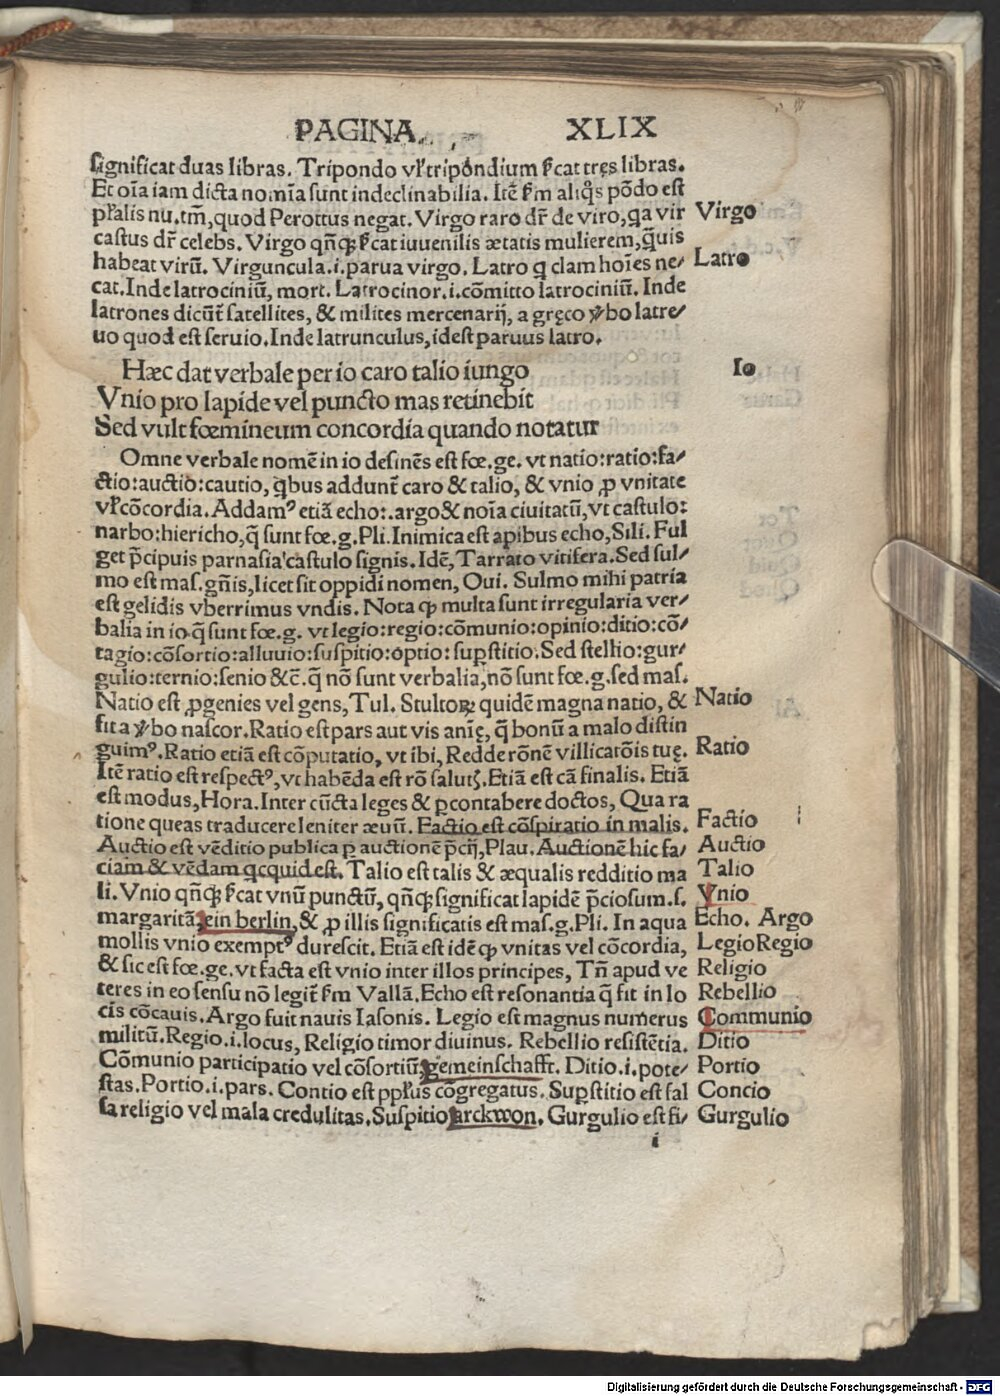 PAGINA XLIX
significat duas libras. Tripondo vl' tripondium ſcat tres libras.
Et oīa iam dicta nomīa ſunt indeclinabilia. Itē ſm aliq̄s pōdo eſt
pl'alis nu.tm̄, quod Perottus negat. Virgo raro dr̄ de viro, qa vir Virgo
caſtus dr̄ celebs. Virgo qn̄qꝫ ſcat iuuenilis ætatis mulierem, q̄uis
habeat virū. Virguncula.i.parua virgo. Latro q clam hoīes ne⸗ Latro
cat. Inde latrociniū, mort. Latrocinor.i.cōmitto latrociniū. Inde
latrones dicūt̄ ſatellites, & milites mercenarij, a gręco ꝟbo latre⸗
uo quod eſt ſeruio. Inde latrunculus, ideſt paruus latro.
Hæc dat verbale per io caro talio iungo Io
Vnio pro lapide vel puncto mas retinebit
Sed vult fœmineum concordia quando notatur
Omne verbale nomē in io deſinēs eſt fœ.ge. vt natio:ratio:fa⸗
ctio:auctio:cautio, qbus addunt̄ caro & talio, & vnio ꝓ vnitate
vl' cōcordia. Addamꝰ etiā echo:.argo & noīa ciuitatū, vt caſtulo:
narbo:hiericho, q̄ ſunt fœ.g. Pli. Inimica eſt apibus echo, Sili. Ful
get p̄cipuis parnaſia caſtulo ſignis. Idē, Tarrato vitifera. Sed ſul⸗
mo eſt maſ.gn̄is, licet ſit oppidi nomen, Oui. Sulmo mihi patria
eſt gelidis vberrimus vndis. Nota ꝙ multa ſunt irregularia ver⸗
balia in io q̄ ſunt fœ.g. vt legio:regio:cōmunio:opinio:ditio:cō⸗
tagio:cōſortio:alluuio:ſuſpitio:optio: ſuꝑſtitio. Sed ſtellio:gur⸗
gulio:ternio:ſenio &c̄. q̄ nō ſunt verbalia, nō ſunt fœ.g. ſed maſ.
Natio eſt ꝓgenies vel gens, Tul. Stultoꝝ quidē magna natio, & Natio
fit a ꝟbo naſcor. Ratio eſt pars aut vis anīę, q̄ bonū a malo diſtin
guimꝰ. Ratio etiā eſt cōputatio, vt ibi, Redde rōnē villicatōis tuę. Ratio
Itē ratio eſt reſpectꝰ, vt habēda eſt rō ſalutꝭ. Etiā eſt cā finalis. Etiā
eſt modus, Hora. Inter cūcta leges & ꝑcontabere doctos, Qua ra
tione queas traducere leniter æuū. Factio eſt cōſpiratio in malis. Factio
Auctio eſt vēditio publica ꝑ auctionē p̄cij, Plau. Auctionē hic fa⸗ Auctio
ciam & vēdam qcquid eſt. Talio eſt talis & æqualis redditio ma Talio
li. Vnio qn̄qꝫ ſcat vnū punctū, qn̄qꝫ ſignificat lapidē p̄cioſum.ſ. Vnio
margaritā, ein berlin, & ꝓ illis ſignificatis eſt maſ.g. Pli. In aqua Echo. Argo
mollis vnio exemptꝰ dureſcit. Etiā eſt idē ꝙ vnitas vel cōcordia, Legio Regio
& ſic eſt fœ.ge. vt facta eſt vnio inter illos principes, Tn̄ apud ve Religio
teres in eo ſenſu nō legit̄ ſm Vallā. Echo eſt reſonantia q̄ fit in lo Rebellio
cis cōcauis. Argo fuit nauis Iaſonis. Legio eſt magnus numerus Communio
militū. Regio.i.locus, Religio timor diuinus. Rebellio reſiſtētia. Ditio
Cōmunio participatio vel cōſortiū, gemeinſchafft. Ditio.i.pote⸗ Portio
ſtas. Portio.i.pars. Contio eſt pp̄l'us cōgregatus. Suꝑſtitio eſt fal Concio
ſa religio vel mala credulitas. Suſpitio arckwon. Gurgulio eſt fi⸗ Gurgulio
i
Digitalisierung gefördert durch die Deutsche Forschungsgemeinschaft - DFG